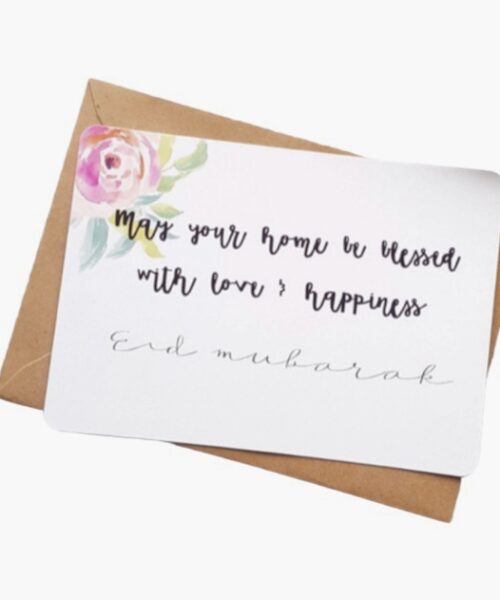 May your home be blessed
with love & happiness
Eid mubarak